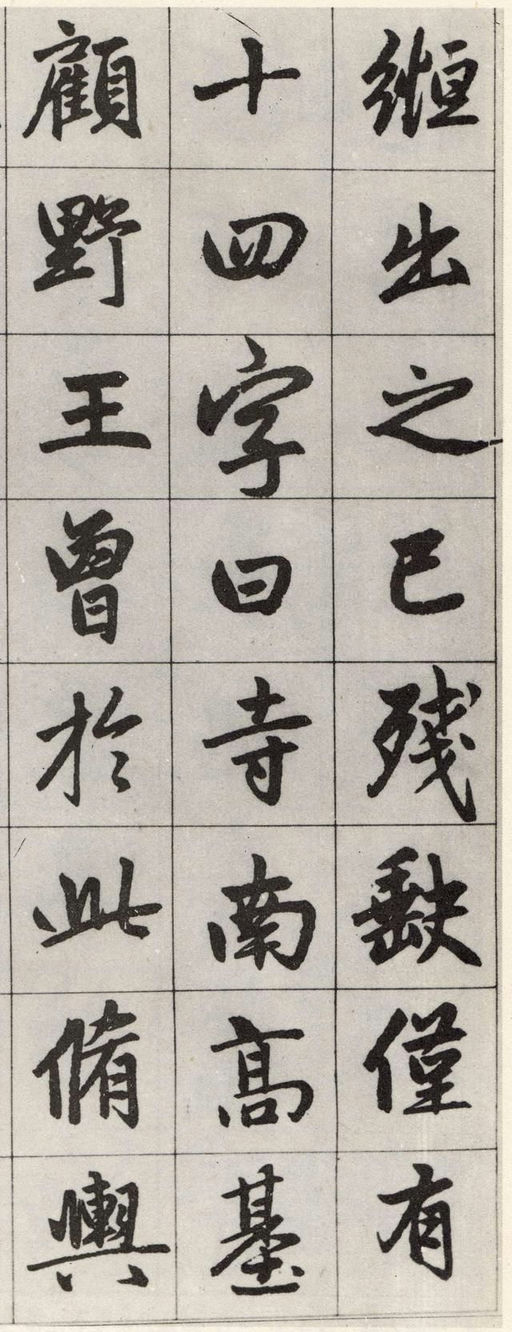 縆出之已殘缺僅有
十四字曰寺南髙基
顧野王曾於此脩輿